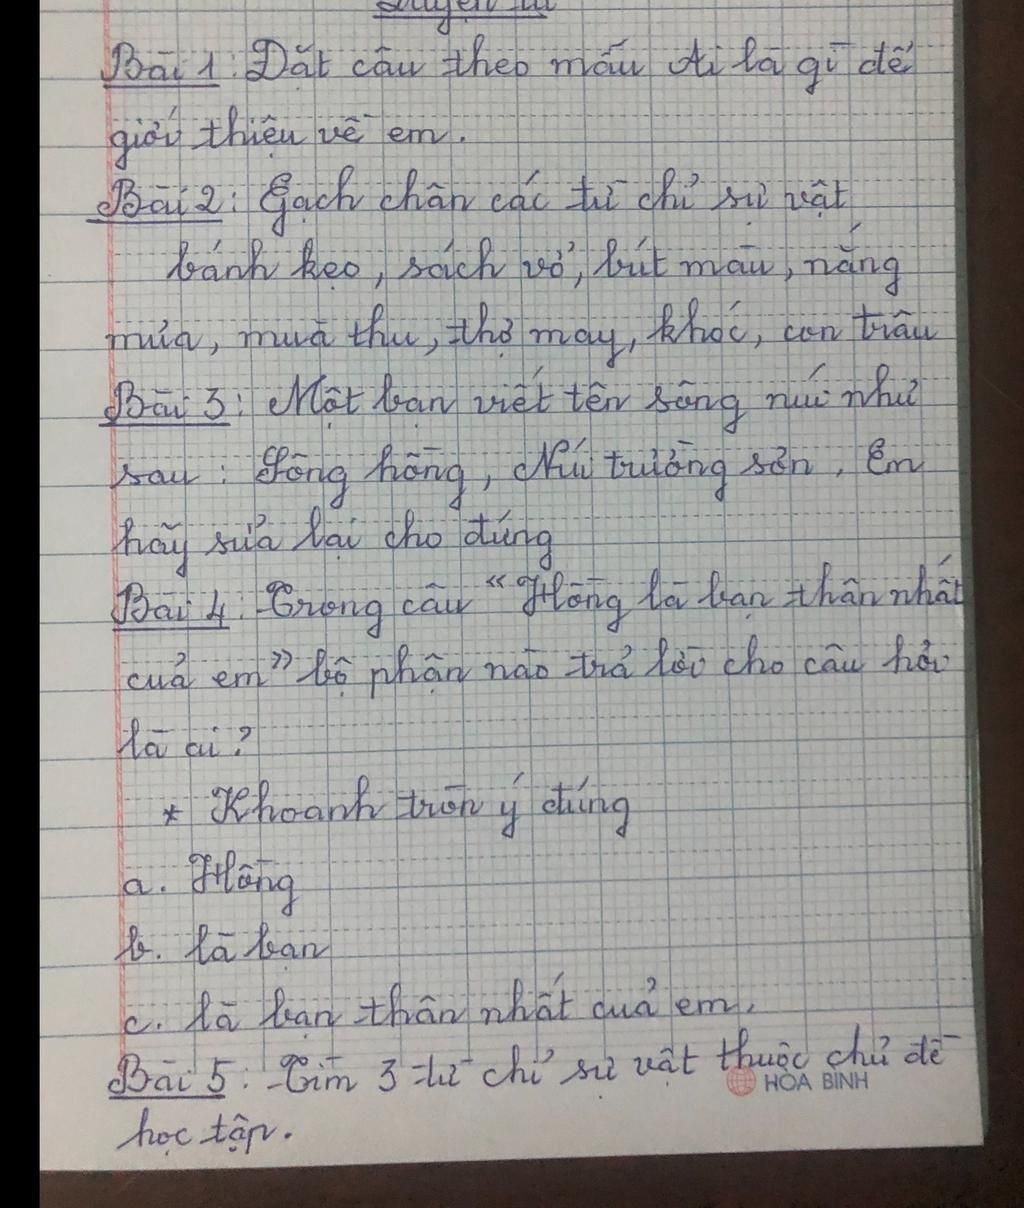 Luyện từ
Bài 1: Đặt câu theo mẫu Ai là gì để
giới thiệu về em.
Bài 2: Gạch chân các từ chỉ sự vật
bánh kẹo, sách vở, bút màu, nắng
mưa, mùa thu, thợ may, khóc, con trâu
Bài 3: Một bạn viết tên sông núi như
sau: Sông hồng, Núi trường sơn. Em
hãy sửa lại cho đúng
Bài 4: Trong câu "Hồng là bạn thân nhất
của em" bộ phận nào trả lời cho câu hỏi
là ai?
* Khoanh tròn ý đúng
a. Hồng
b. là bạn
c. là bạn thân nhất của em.
Bài 5: Tìm 3 từ chỉ sự vật thuộc chủ đề
HÒA BÌNH
học tập.